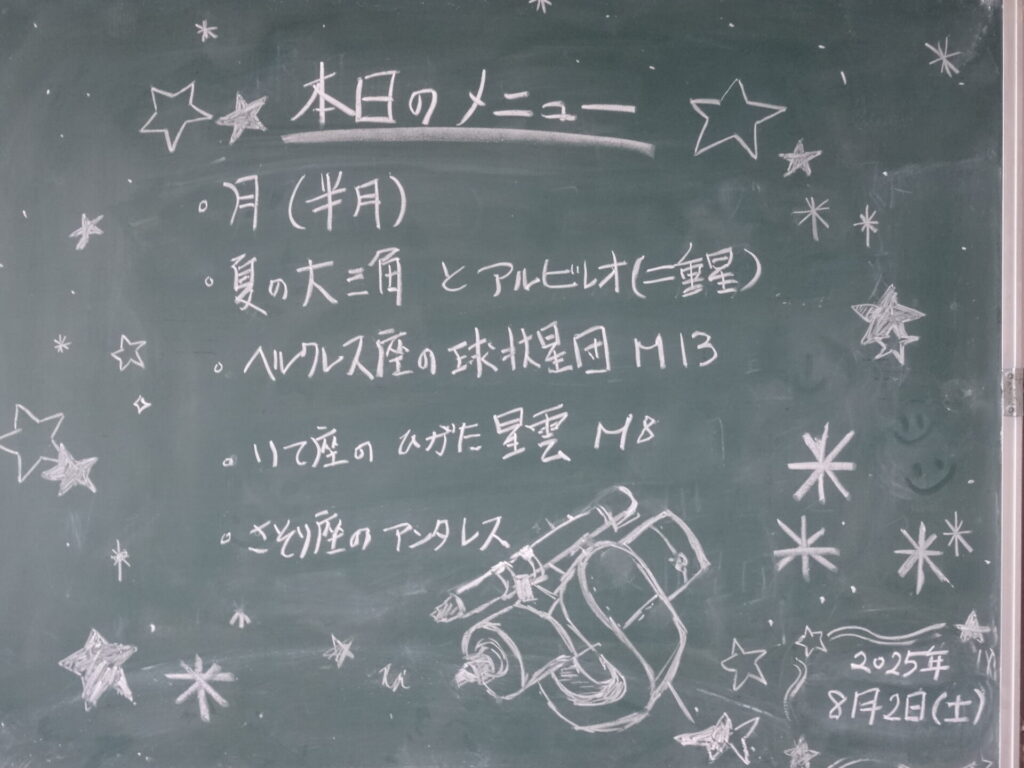 本日のメニュー
。月(半月)
。夏の大三角 と アルビレオ(二重星)
。ヘルクレス座の球状星団 M13
。いて座の ひがた星雲 M8
。さそり座のアンタレス
2025年
8月2日(土)